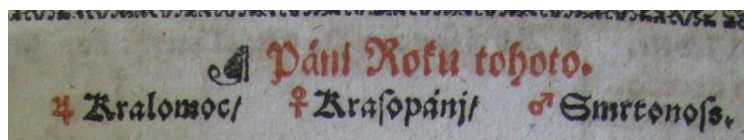 Páni Roku tohoto.
♃ Kralomoc/ ♀ Kraſopánj/ ♂ Smrtonoſs.